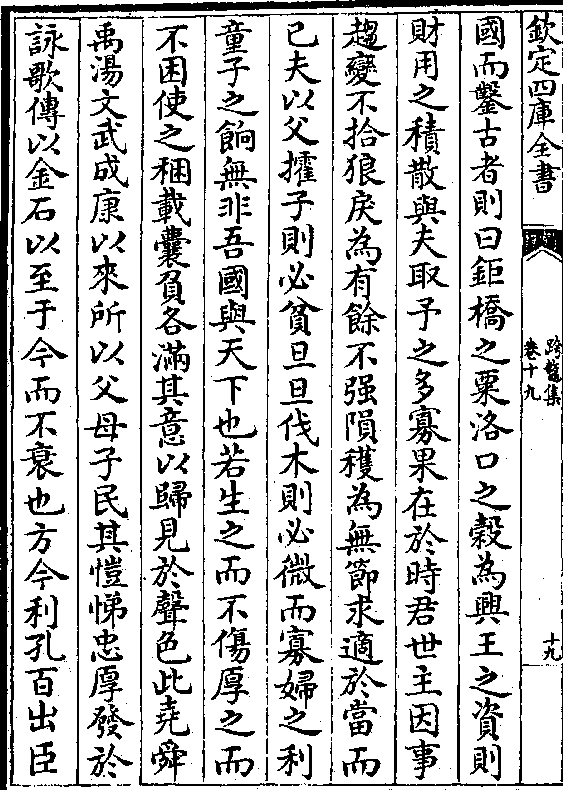 欽定四庫全書
跨鼇集
卷十九
十九
國而鑿古者則曰鉅橋之粟洛口之榖為興王之資則
財用之積散與夫取予之多寡果在於時君世主因事
趨變不拾狼戾為有餘不强隕穫為無節求適於當而
已夫以父攉子則必貧旦旦伐木則必微而寡婦之利
童子之餉無非吾國與天下也若生之而不傷厚之而
不困使之稛載囊負各滿其意以歸見於聲色此堯舜
禹湯文武成康以來所以父母子民其愷悌忠厚發於
詠歌傳以金石以至于今而不衰也方今利孔百出臣